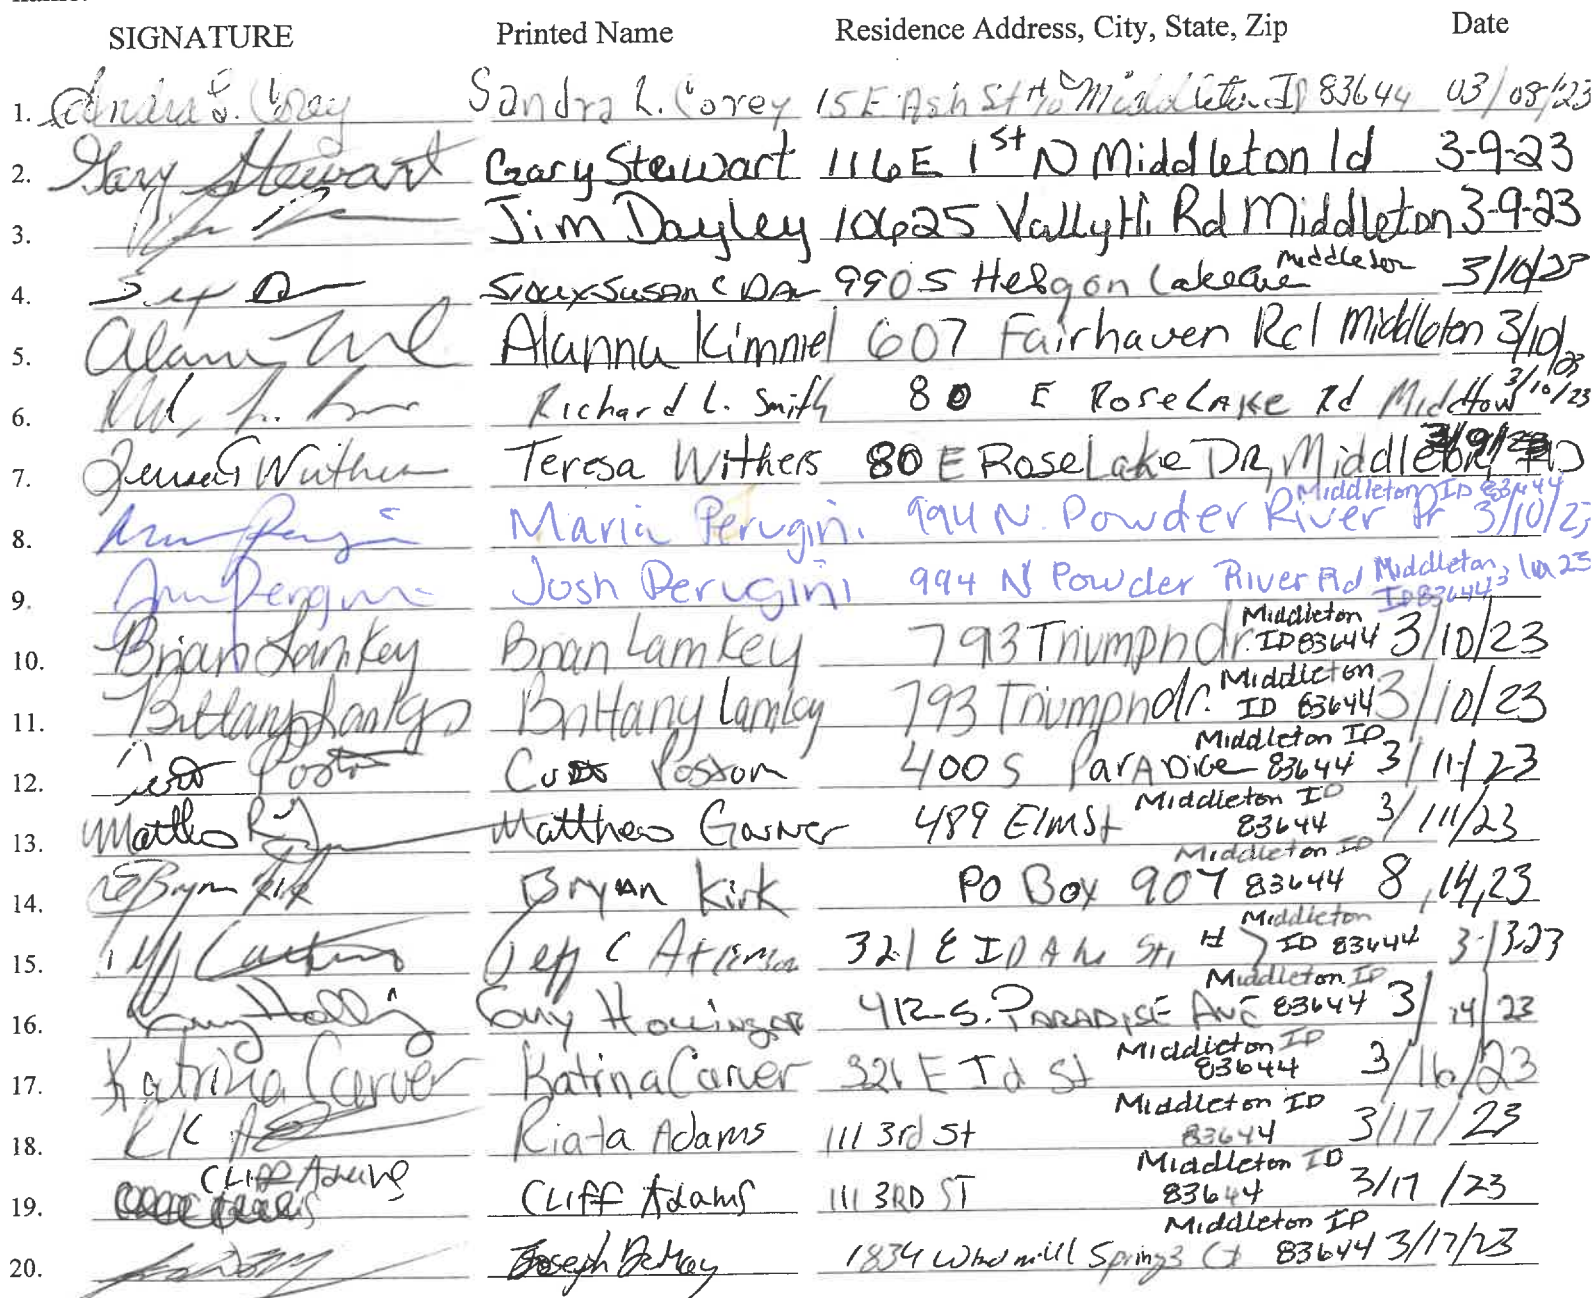 SIGNATURE Printed Name Residence Address, City, State, Zip Date
1. Sandra L. Corey 15 E Ash St Middleton ID 83644 03/08/23
2. Gary Stewart Gary Stewart 116 E 1st N Middleton Id 3-9-23
3. Jim Dayley 10625 Vally Hi Rd Middleton 3-9-23
4. Sioux Susan C 990 S Middleton 3/10/23
5. Alanna Kimmel 607 Fairhaven Rd Middleton 3/10/23
6. Richard L. Smith 80 E Rose LAKE Rd 3/10/23
7. Teresa Withers 80 E Rose Lake DR, Middleton, ID
8. Maria Perugini 994 N. Powder River Dr Middleton ID 83644 3/10/23
9. Josh Perugini 994 N Powder River Rd Middleton, ID 83644
10. Brian Lamkey Brian Lamkey 793 Triumph dr. Middleton ID 83644 3/10/23
11. Brittany Lamkey 793 Triumph dr. Middleton ID 83644 3/10/23
12. Poston 400 S ParADice Middleton ID 83644 3/11/23
13. Matthew Garner 489 Elm St Middleton ID 83644 3/11/23
14. Bryan Kirk Bryan Kirk PO Box 907 Middleton ID 83644 8,14,23
15. Jeff C 321 E IDAho St, Middleton ID 83644 3-13-23
16. Guy Hollinger 412 S. PARADISE AVE Middleton ID 83644 3/14/23
17. Katrina Carver Katrina Carver E Id St Middleton ID 83644 3/16/23
18. Riata Adams 111 3rd St Middleton ID 83644 3/17/23
19. CLIFF Adams CLIFF Adams 111 3RD ST Middleton ID 83644 3/17/23
20. Joseph 1834 Windmill Springs Ct Middleton ID 83644 3/17/23